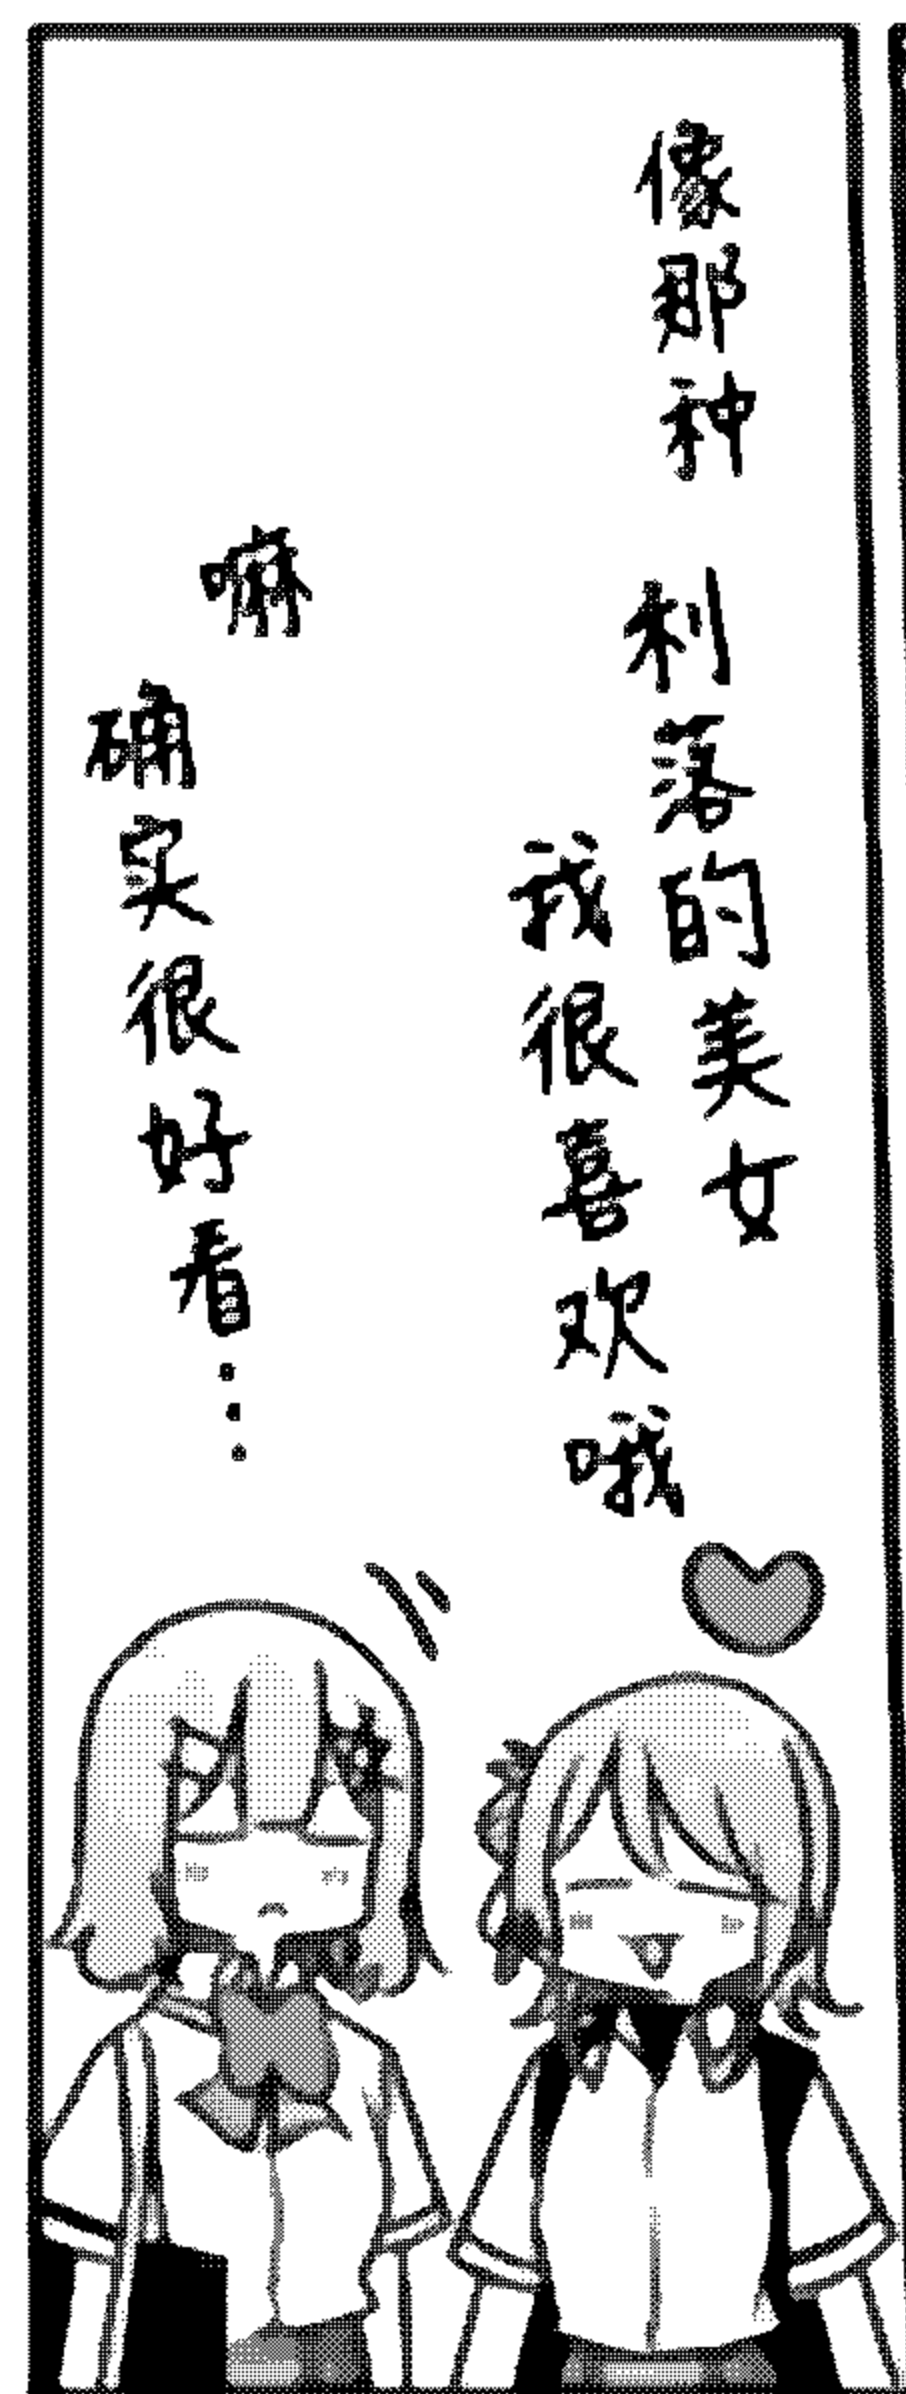 像那种
利落的美女
我很喜欢哦
嘛
确实很好看…